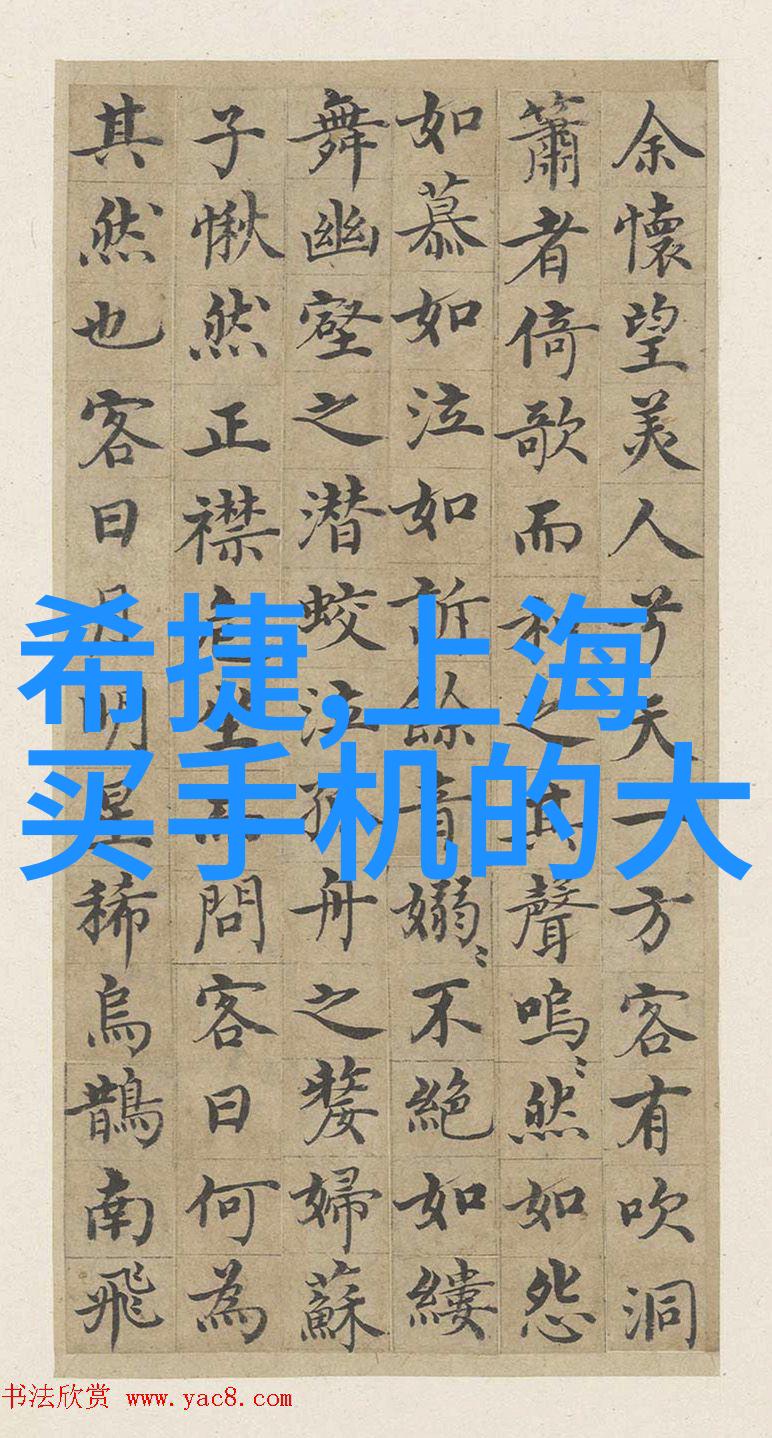 余懷望美人兮天一方客有吹洞
簫者倚歌而和之其聲嗚〻然如怨
如慕如泣如訴餘音嫋〻不絶如縷
舞幽壑之潜蛟泣孤舟之嫠婦蘇
子愀然正襟危坐而問客曰何為
其然也客曰月明星稀烏鵲南飛
希捷,上海
买手机的大
书法欣赏 www.yac8.com